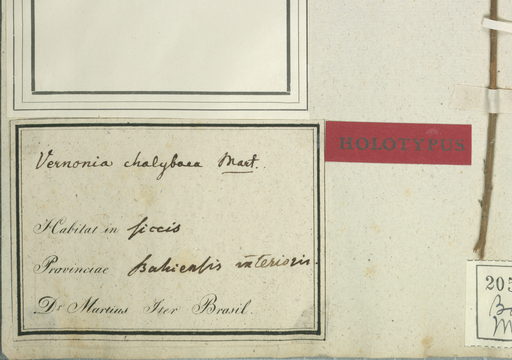 Vernonia chalybaea Mart.
HOLOTYPUS
Habitat in siccis
Provinciae Bahiensis interioris.
Dr. Martius Iter Brasil.
205